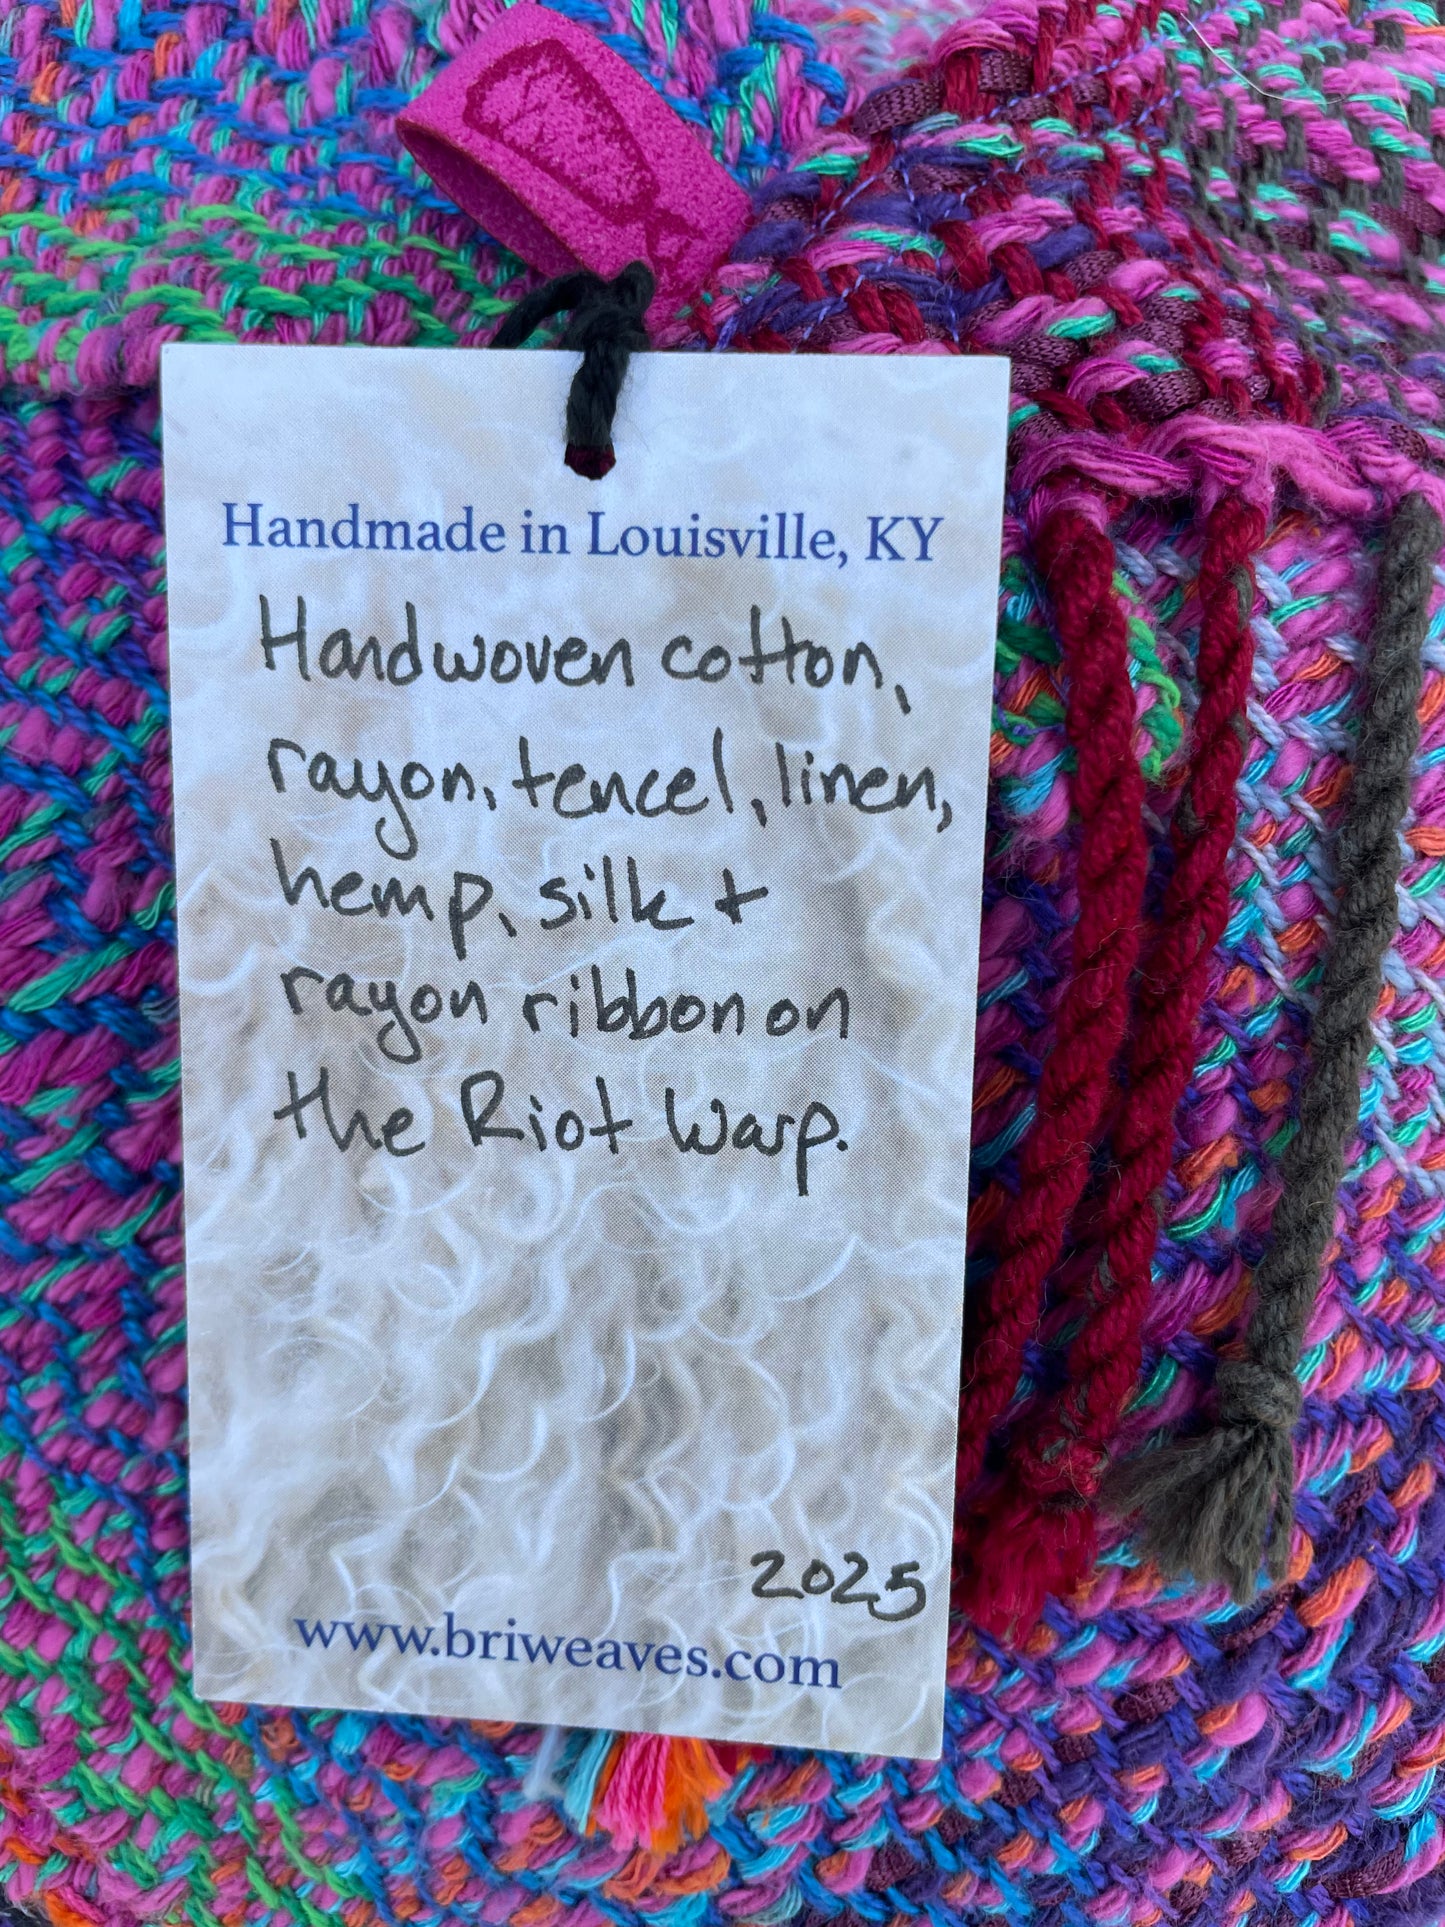 Handmade in Louisville, KY
Handwoven cotton,
rayon, tencel, linen,
hemp, silk +
rayon ribbon on
the Riot Warp.
2025
www.briweaves.com